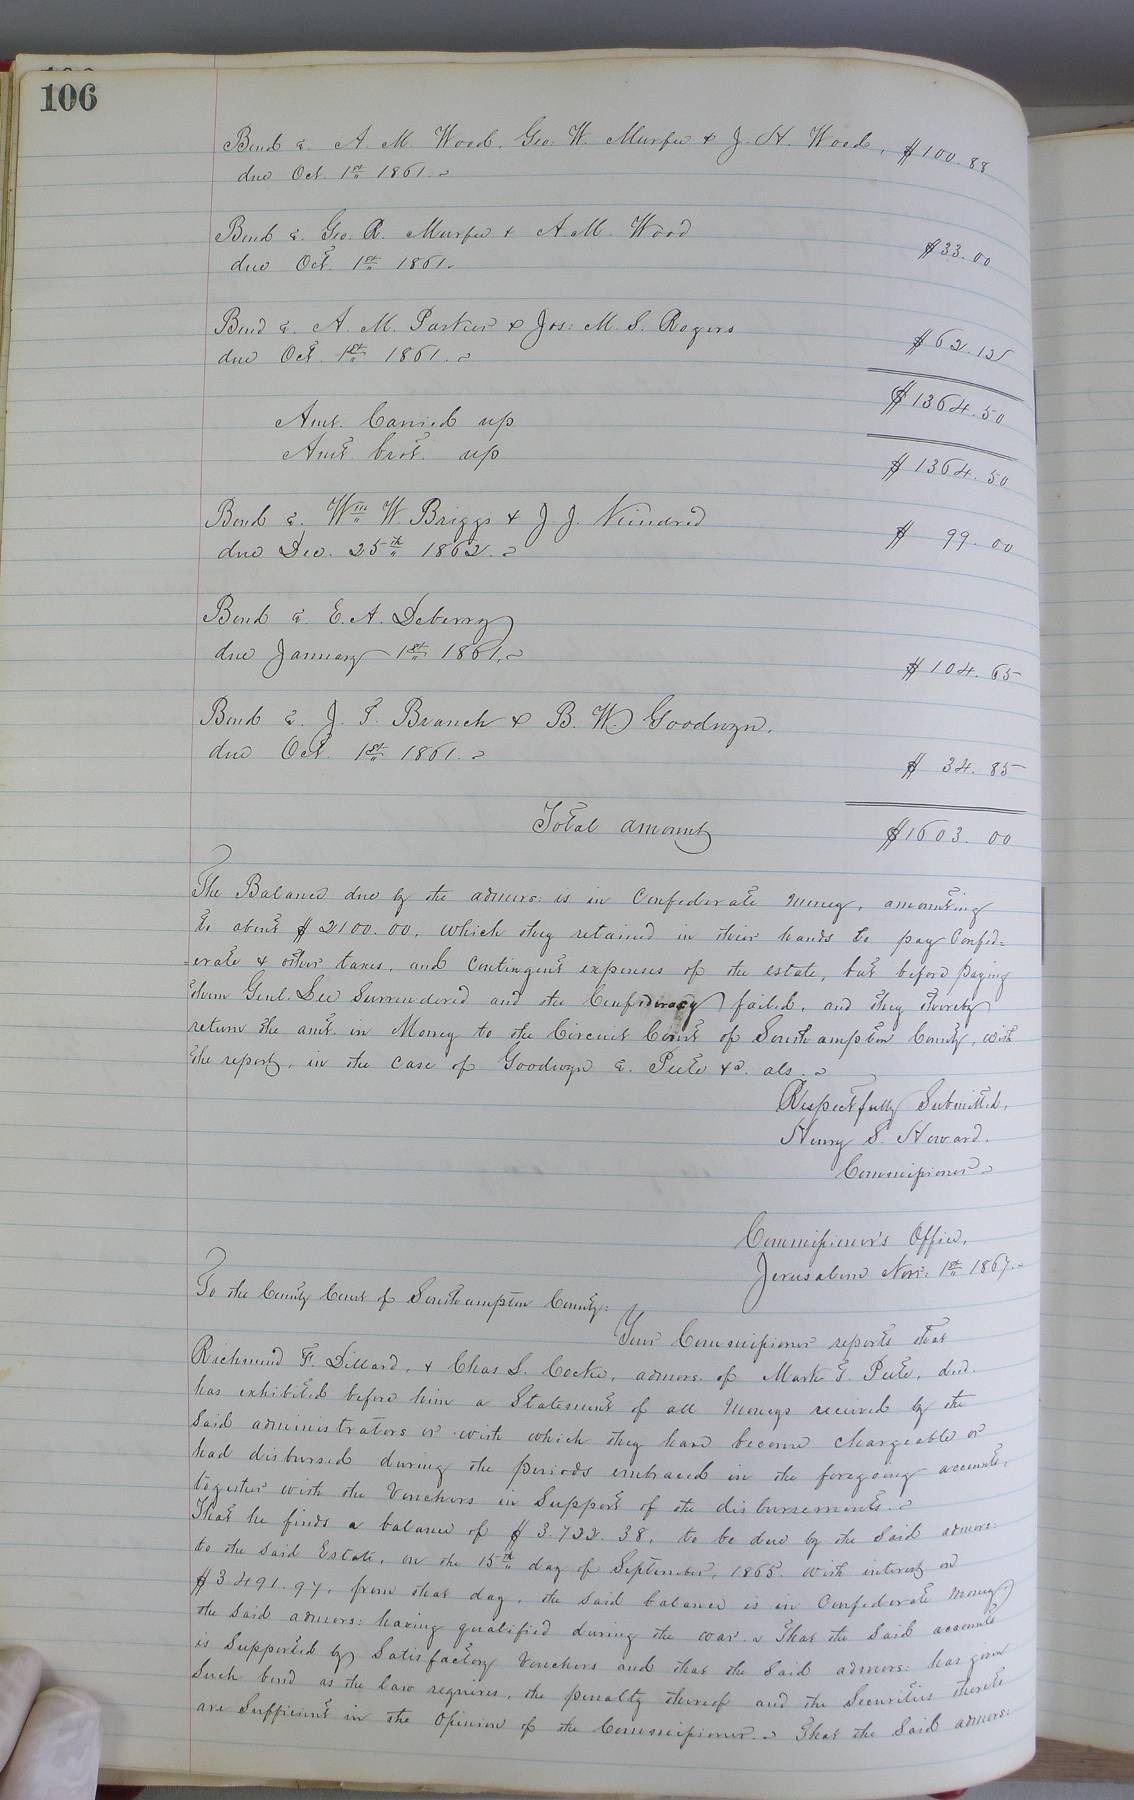 106
Bond a. A. M. Wood, Geo. W. Murfee & J. H. Wood, $100.88
due Oct. 1st 1861.
Bond a. Geo. R. Murfee & A. M. Wood
due Oct. 1st 1861. $33.00
Bond a. A. M. Parker & Jos: M. S. Rogers
due Oct. 1st 1861. $62.12
$1364.50
Amt. Carried up
Amt. brot. up $1364.50
Bond a. Wm W. Briggs & J. J.
due Dec. 25th 1862. $ 99.00
Bond a. E. A. Deberry
due January 1st 1861. $104.65
Bond a. J. F. Branch & B. W. Goodwyn.
due Oct. 1st 1861. $ 34.85
Total amount $1603.00
The Balance due by the admors: is in Confederate money, amounting
to about $2100.00, which they retained in their hands to pay Confed=
=erate & other taxes, and Contingent expenses of the estate, but before paying
them Genl. Lee Surrendered and the Confederacy failed, and they thereby
return the amt. in Money to the Circuit Court of Southampton County, with
the report, in the case of Goodwyn a. Peete &c. als.
Respectfully Submitted,
Henry S. Howard.
Commissioner
Commissioner's Office,
Jerusalem Nov: 1st 1867.
To the County Court of Southampton County:
Your Commissioner reports that
Richmond F. Dillard, & Chas S. Cocke, admors. of Mark G. Peete, decd.
has exhibited before him a Statement of all Moneys received by the
Said administrators or with which they have become chargeable or
had disbursed during the periods embraced in the foregoing accounts,
together with the Vouchers in Support of the disbursements.
That he finds a balance of $3.722.38, to be due by the Said admors:
to the Said Estate, on the 15th day of September, 1865. with interest on
$3491.97, from that day, the said balance is in Confederate money,
the Said admors: having qualified during the war. That the Said accounts
is Supported by Satisfactory Vouchers and that the Said admors: has given
Such bond as the law requires, the penalty thereof and the Securities thereto
are Sufficient in the Opinion of the Commissioner. That the Said admors: